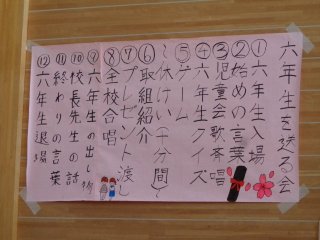 六年生を送る会
①六年生入場
②始めの言葉
③児童会歌斉唱
④六年生クイズ
⑤ゲーム
〜休けい十分間〜
⑥取組紹介
⑦プレゼント渡し
⑧全校合唱
⑨六年生の出し物
⑩校長先生の話
⑪終わりの言葉
⑫六年生退場